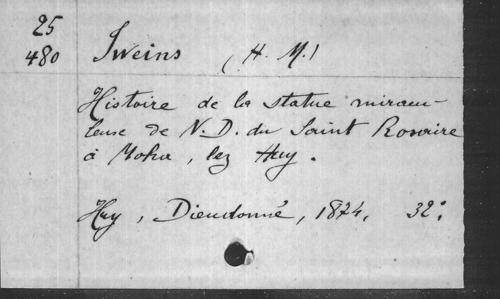 25
480 Sweins (H. M.)
Histoire de la statue miracu-
leuse de N. D. du Saint Rosaire
à Moha, lez Huy.
Huy, Dieudonné, 1874. 32°.